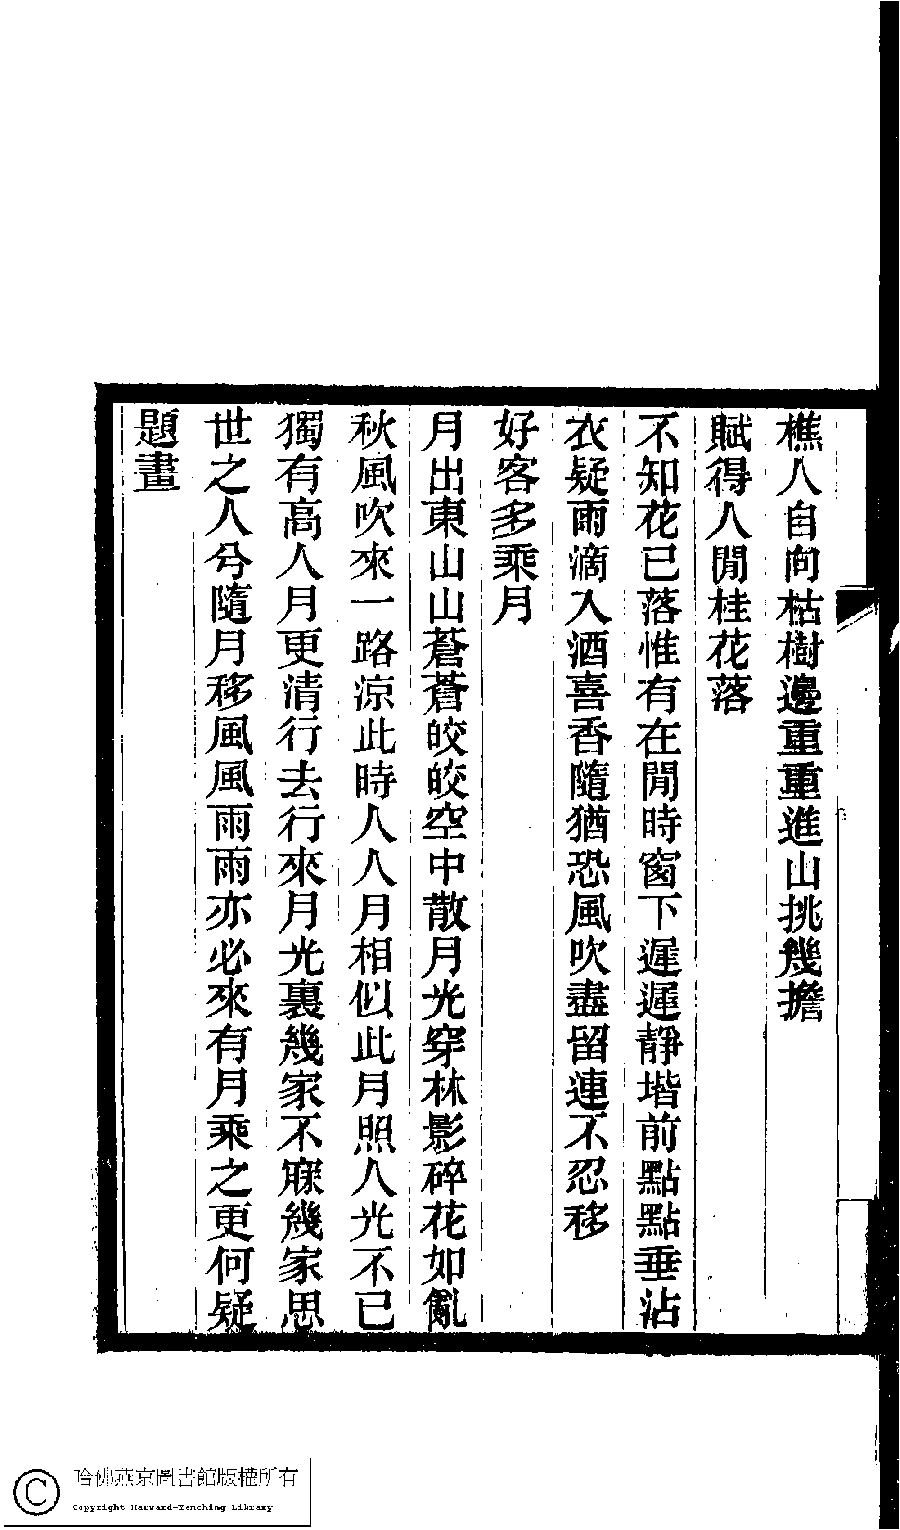 樵人自向枯樹邊重重進山挑幾擔
賦得人閒桂花落
不知花已落惟有在閒時窗下遲遲靜堦前點點垂沾
衣疑雨滴入酒喜香隨猶恐風吹盡留連不忍移
好客多乘月
月出東山山蒼蒼皎皎空中散月光穿林影碎花如亂
秋風吹來一路涼此時人人月相似此月照人光不已
獨有高人月更清行去行來月光裏幾家不寐幾家思
世之人兮隨月移風風雨雨亦必來有月乘之更何疑
題畫
哈佛燕京圖書館版權所有
Copyright Harvard-Yenching Library